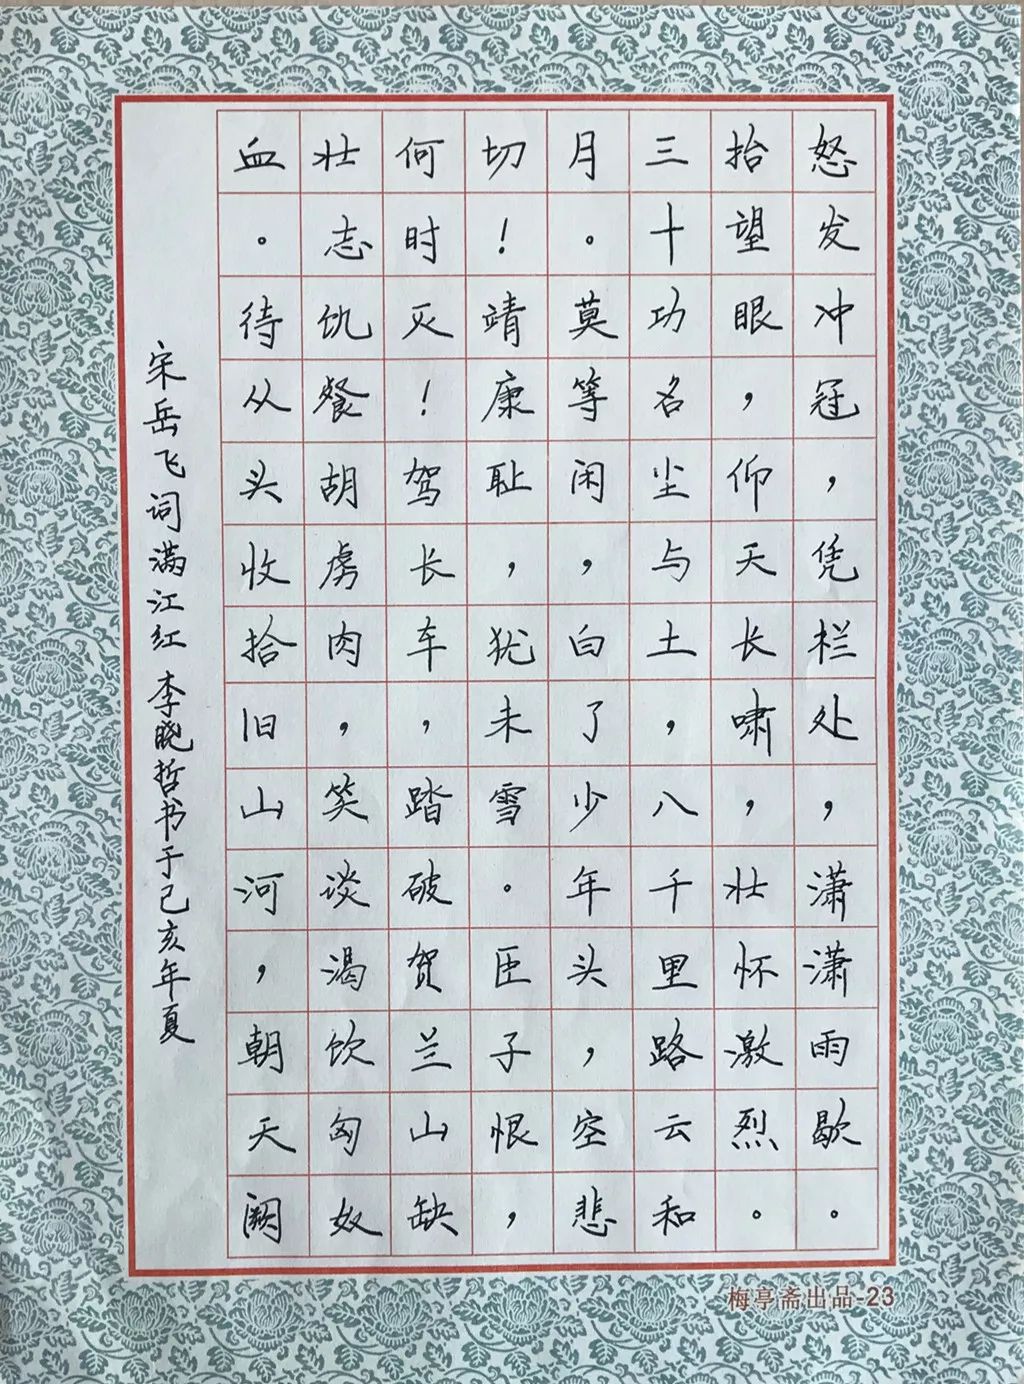 怒发冲冠，凭栏处，潇潇雨歇。
抬望眼，仰天长啸，壮怀激烈。
三十功名尘与土，八千里路云和
月。莫等闲，白了少年头，空悲
切！靖康耻，犹未雪。臣子恨，
何时灭！驾长车，踏破贺兰山缺
壮志饥餐胡虏肉，笑谈渴饮匈奴
血。待从头收拾旧山河，朝天阙
宋岳飞词满江红 李晓哲书于己亥年夏
梅亭斋出品-23